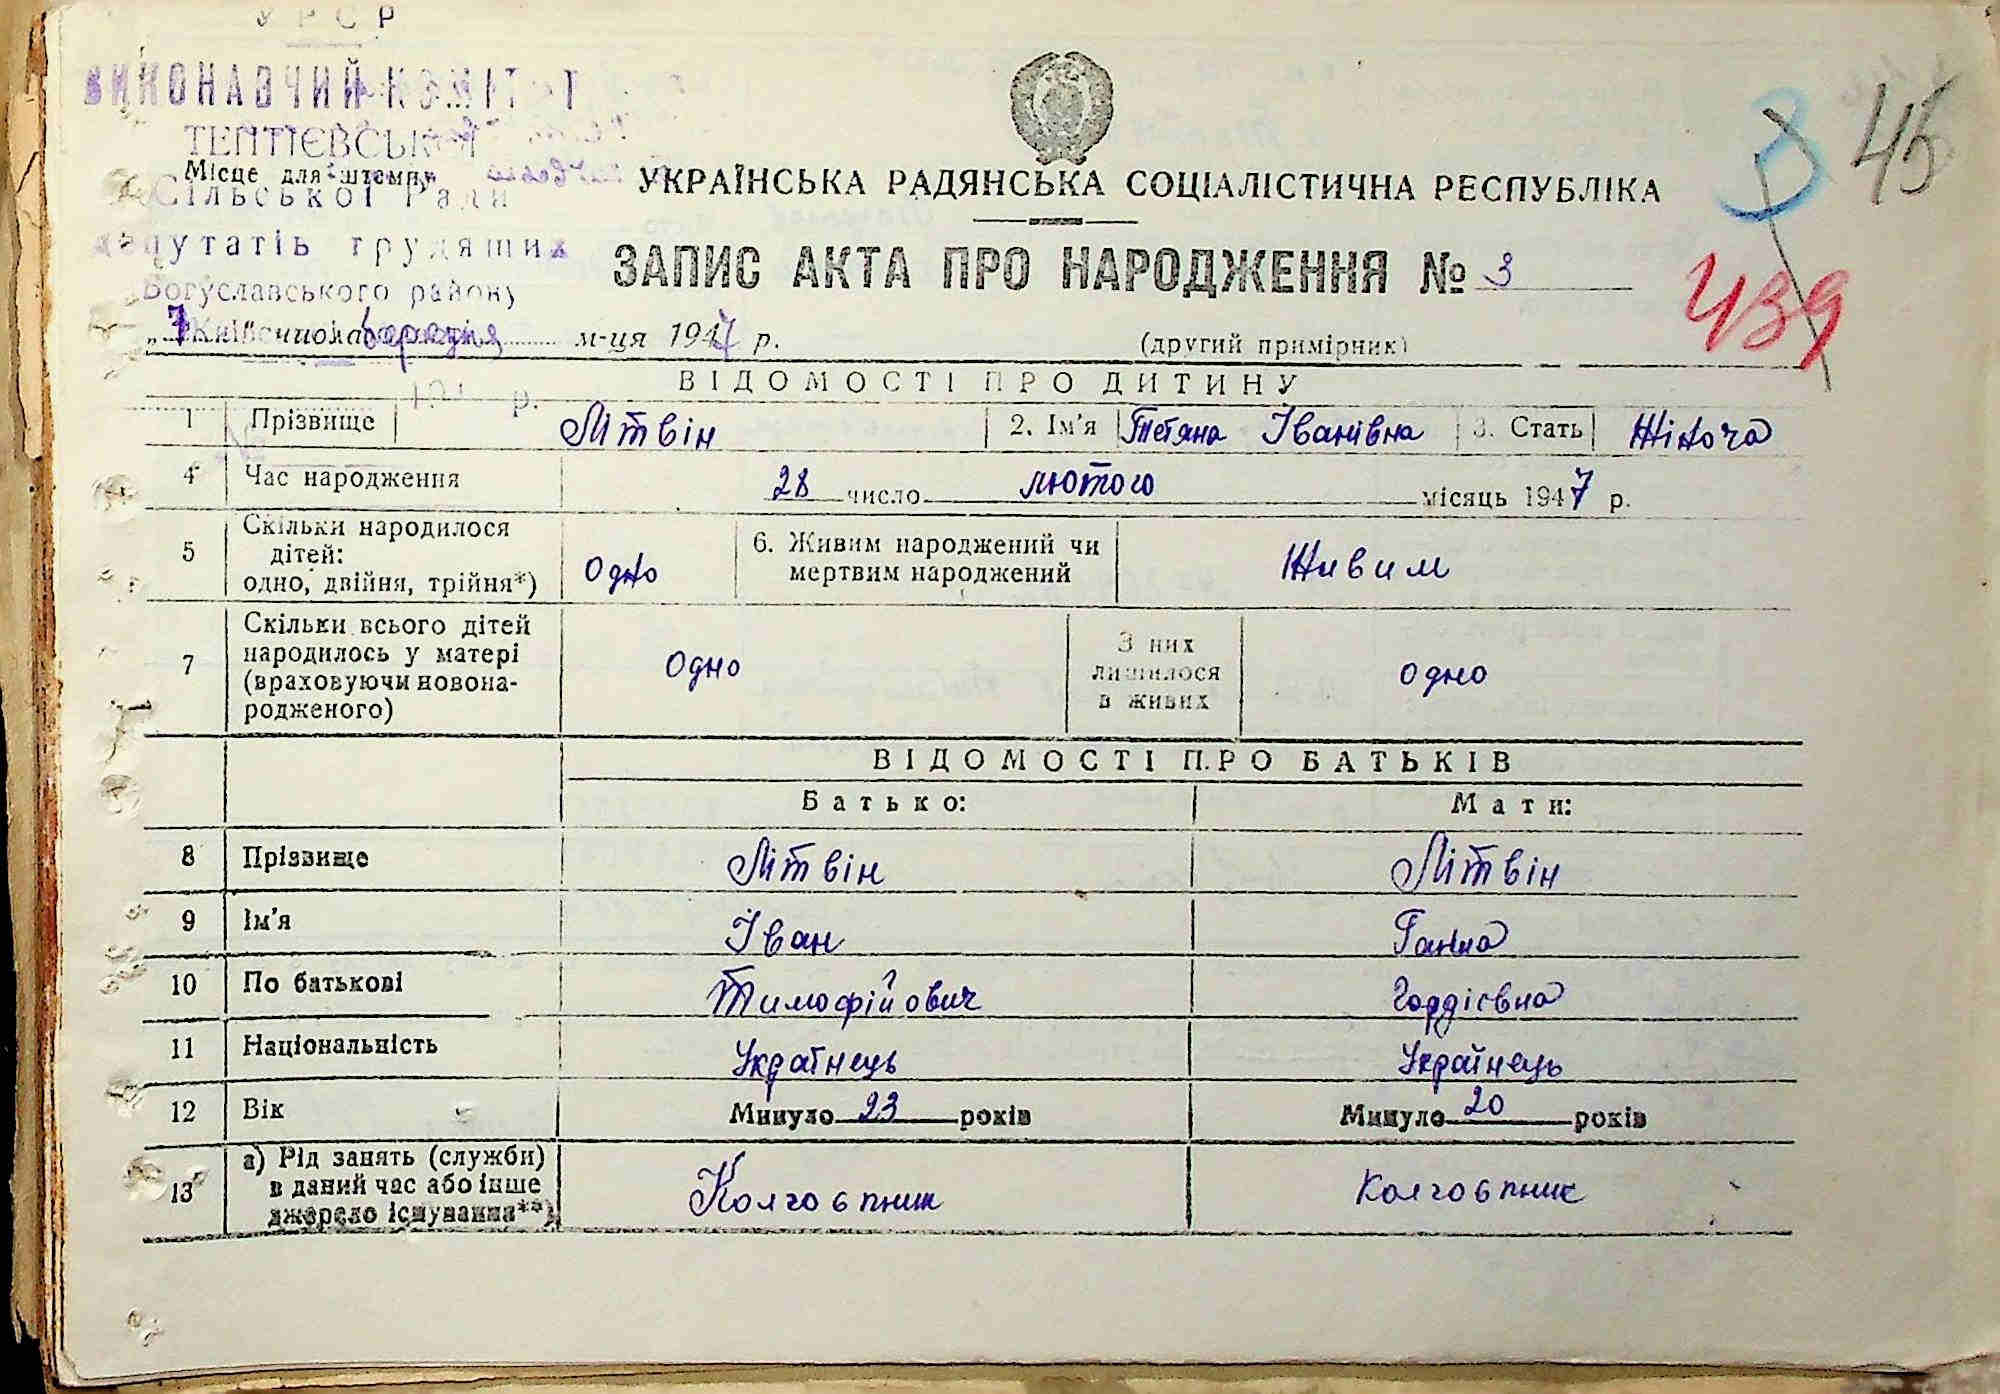 УРСР
ВИКОНАВЧИЙ КОМІТЕТ
ТЕПТІЄВСЬКОЇ
Місце для штемпу
Сільської Ради
депутатів трудящих
Богуславського району
Київської
УКРАЇНСЬКА РАДЯНСЬКА СОЦІАЛІСТИЧНА РЕСПУБЛІКА
3 45
ЗАПИС АКТА ПРО НАРОДЖЕННЯ № 3
439
„7 березня м-ця 1947 р.
(другий примірник)
194 р.
ВІДОМОСТІ ПРО ДИТИНУ
1 Прізвище Літвін 2. Ім'я Тетяна Іванівна 3. Стать Жіноча
4 Час народження 28 число лютого місяць 1947 р.
5 Скільки народилося дітей: одно, двійня, трійня*) Одно 6. Живим народжений чи мертвим народжений Живим
7 Скільки всього дітей народилось у матері (враховуючи новонародженого) Одно З них лишилося в живих одно
ВІДОМОСТІ ПРО БАТЬКІВ
Батько: Мати:
8 Прізвище Літвін Літвін
9 Ім'я Іван Ганна
10 По батькові Тимофійович Гордієвна
11 Національність Українець Українець
12 Вік Минуло 23 років Минуло 20 років
13 а) Рід занять (служби) в даний час або інше джерело існування**) Колгоспник Колгоспник